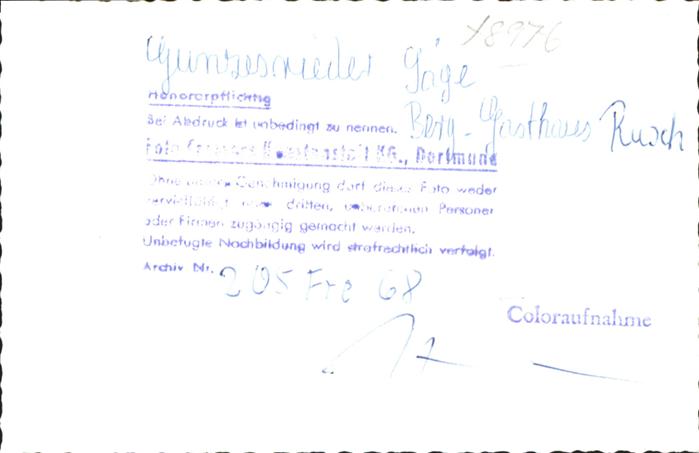 18976
Gunzesrieder Säge
Honorarpflichtig
Bei Abdruck ist unbedingt zu nennen. Berg-Gasthaus Rusch
Foto Cramers Kunstanstalt KG., Dortmund
Ohne unsere Genehmigung darf dieses Foto weder
vervielfältigt noch dritten, unberufenen Personen
oder Firmen zugängig gemacht werden.
Unbefugte Nachbildung wird strafrechtlich verfolgt.
Archiv Nr. 205 Fre 68
Coloraufnahme